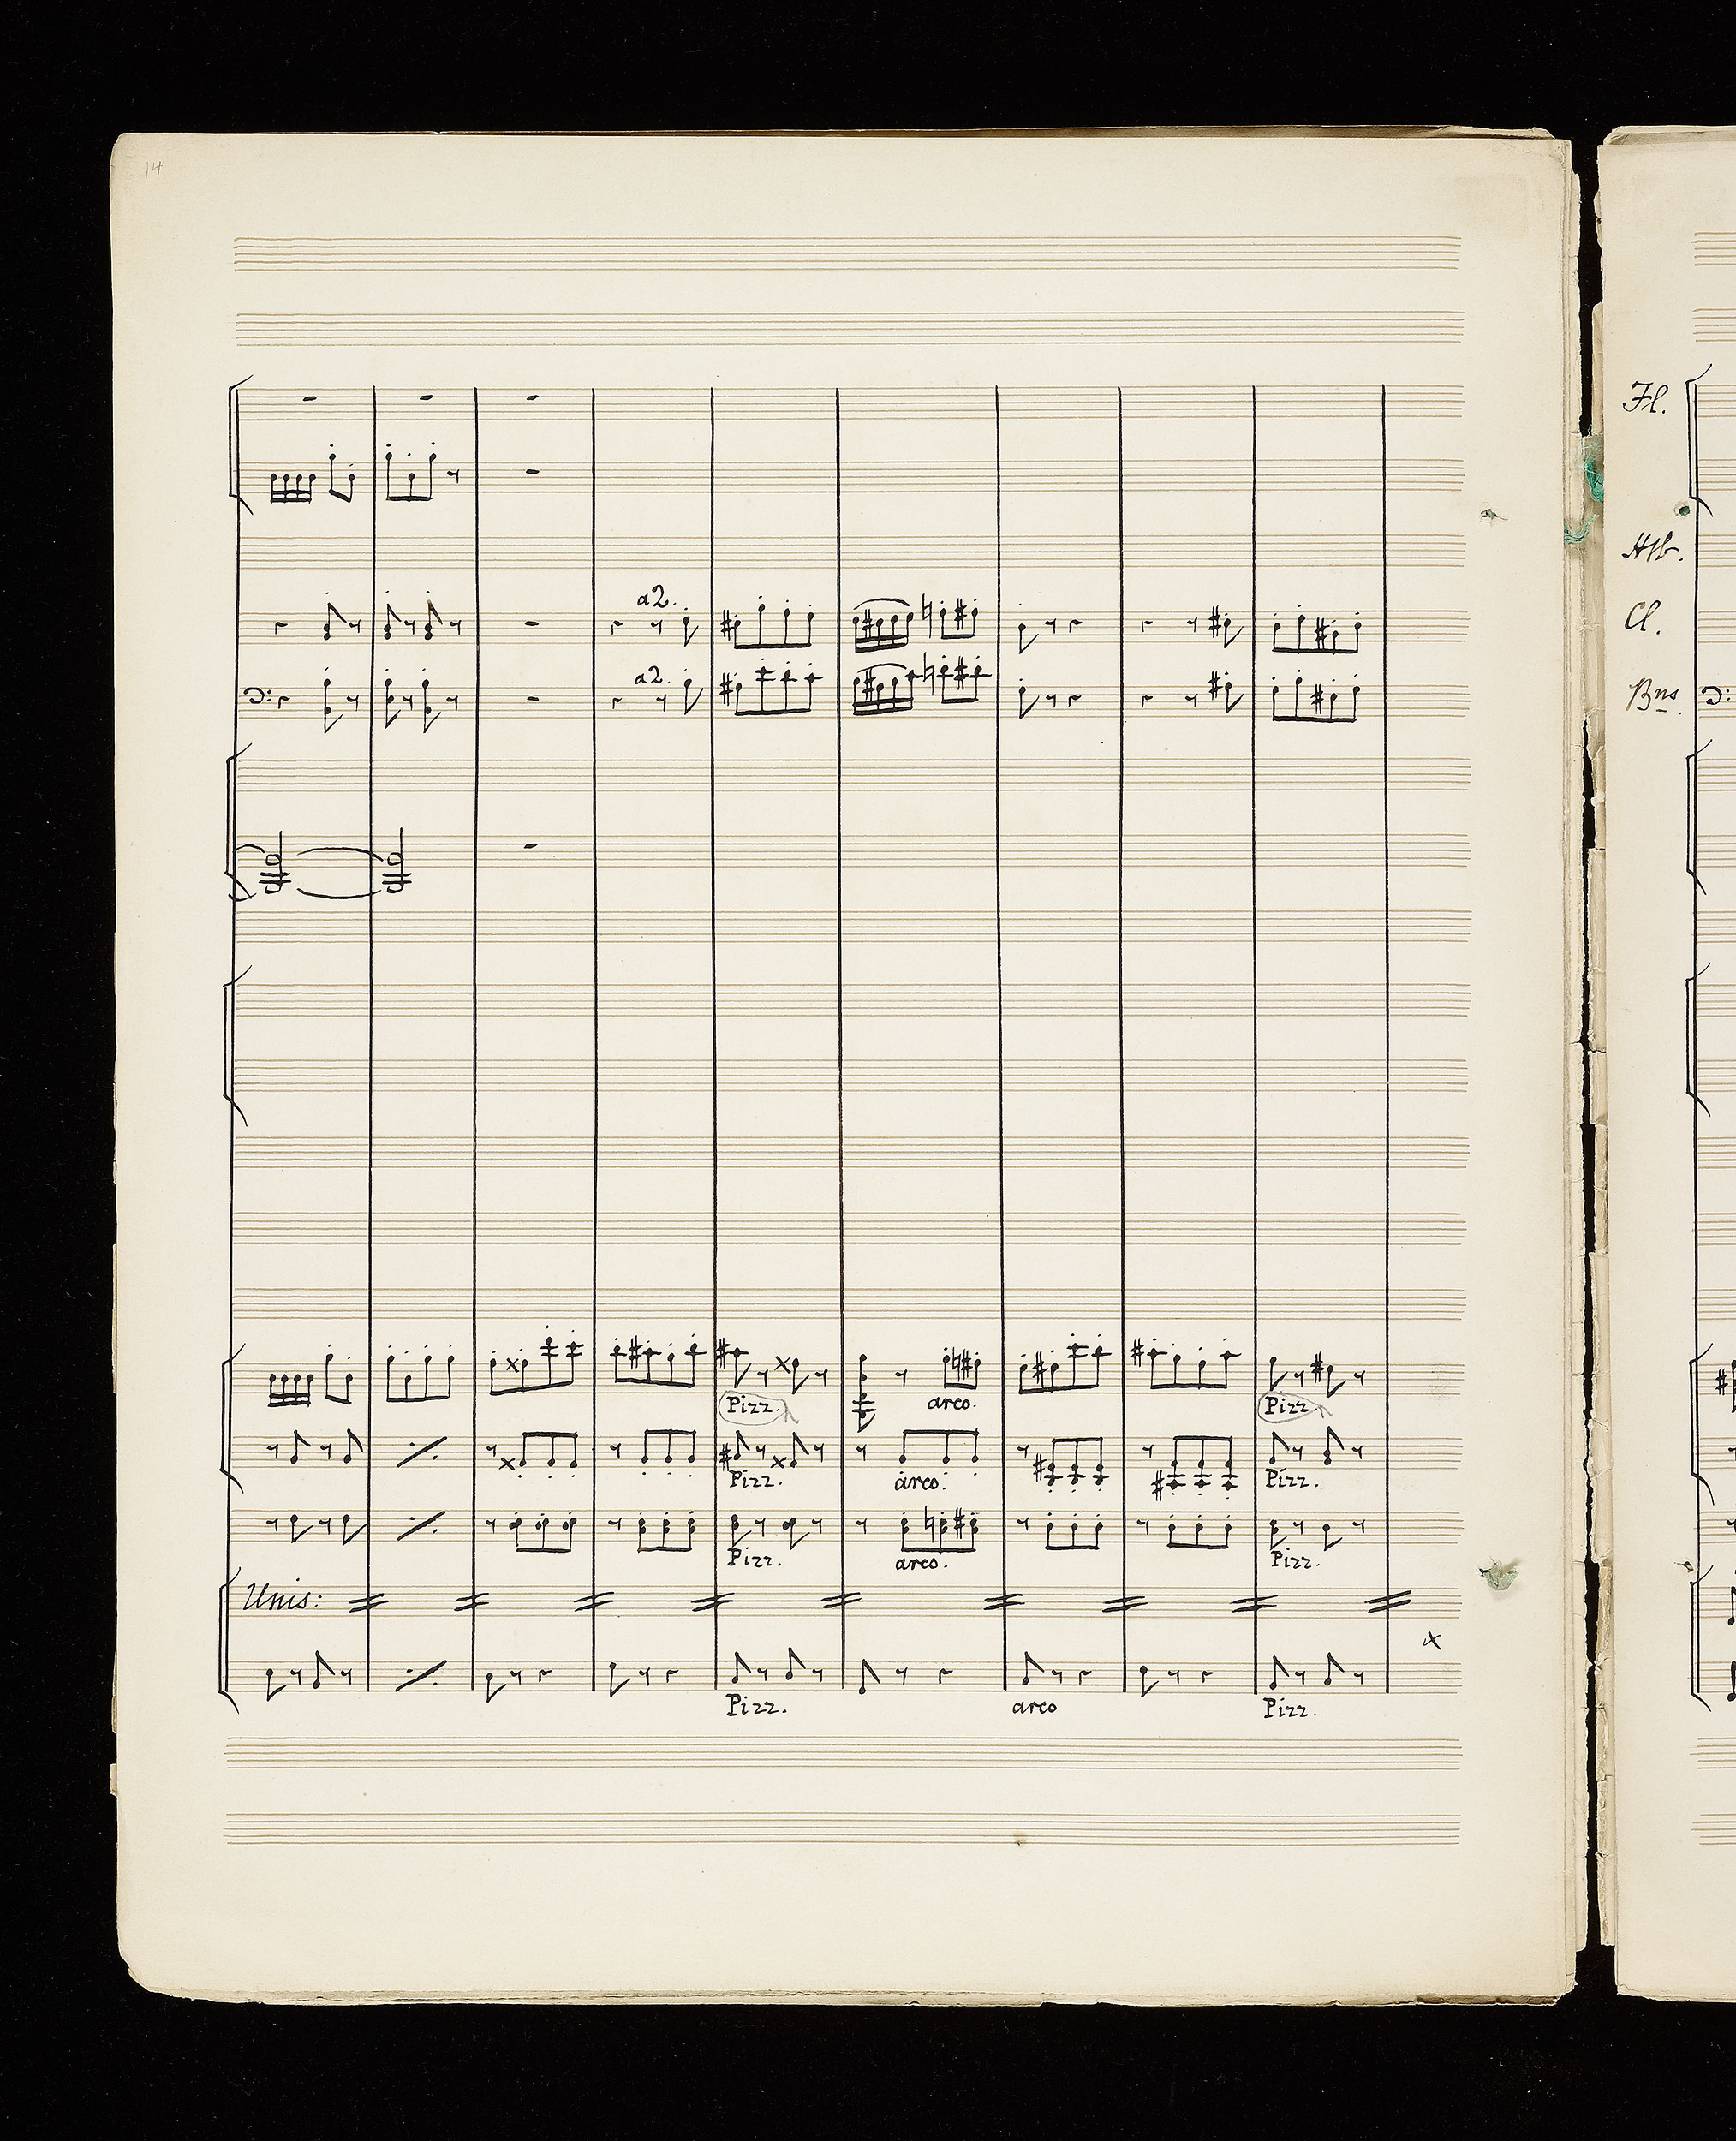 14
Fl.
Htb.
a2.
Cl.
a2.
Bns.
Pizz. arco. Pizz.
Pizz. arco. Pizz.
Pizz. arco. Pizz.
Unis:
x
Pizz. arco Pizz.